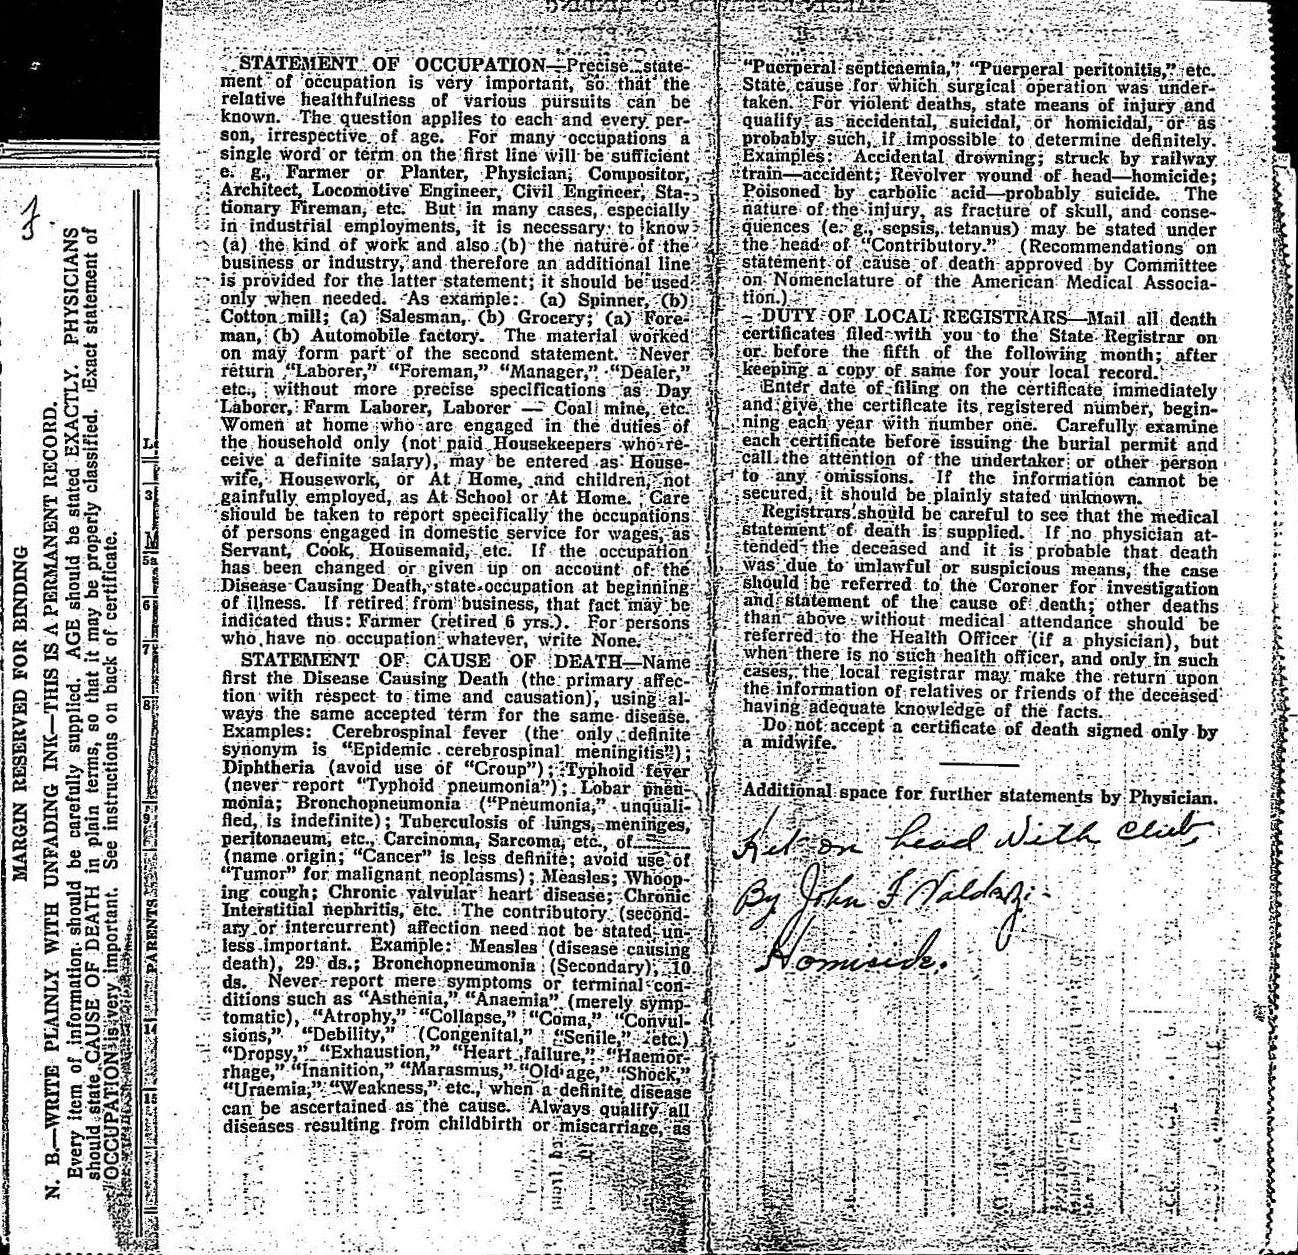 MARGIN RESERVED FOR BINDING
N. B.—WRITE PLAINLY WITH UNFADING INK—THIS IS A PERMANENT RECORD.
Every item of information should be carefully supplied. AGE should be stated EXACTLY. PHYSICIANS
should state CAUSE OF DEATH in plain terms, so that it may be properly classified. Exact statement of
OCCUPATION is very important. See instructions on back of certificate.
3
M
5a
6
7
8
9
PARENTS
14
15
STATEMENT OF OCCUPATION—Precise state-
ment of occupation is very important, so that the
relative healthfulness of various pursuits can be
known. The question applies to each and every per-
son, irrespective of age. For many occupations a
single word or term on the first line will be sufficient
e. g., Farmer or Planter, Physician, Compositor,
Architect, Locomotive Engineer, Civil Engineer, Sta-
tionary Fireman, etc. But in many cases, especially
in industrial employments, it is necessary to know
(a) the kind of work and also (b) the nature of the
business or industry, and therefore an additional line
is provided for the latter statement; it should be used
only when needed. As example: (a) Spinner, (b)
Cotton mill; (a) Salesman, (b) Grocery; (a) Fore-
man, (b) Automobile factory. The material worked
on may form part of the second statement. Never
return "Laborer," "Foreman," "Manager," "Dealer,"
etc., without more precise specifications as Day
Laborer, Farm Laborer, Laborer — Coal mine, etc.
Women at home who are engaged in the duties of
the household only (not paid Housekeepers who re-
ceive a definite salary), may be entered as House-
wife, Housework, or At Home, and children, not
gainfully employed, as At School or At Home. Care
should be taken to report specifically the occupations
of persons engaged in domestic service for wages, as
Servant, Cook, Housemaid, etc. If the occupation
has been changed or given up on account of the
Disease Causing Death, state occupation at beginning
of illness. If retired from business, that fact may be
indicated thus: Farmer (retired 6 yrs.). For persons
who have no occupation whatever, write None.
STATEMENT OF CAUSE OF DEATH—Name
first the Disease Causing Death (the primary affec-
tion with respect to time and causation), using al-
ways the same accepted term for the same disease.
Examples: Cerebrospinal fever (the only definite
synonym is "Epidemic cerebrospinal meningitis");
Diphtheria (avoid use of "Croup"); Typhoid fever
(never report "Typhoid pneumonia"); Lobar pneu-
monia; Bronchopneumonia ("Pneumonia," unquali-
fied, is indefinite); Tuberculosis of lungs, meninges,
peritonaeum, etc., Carcinoma, Sarcoma, etc., of
(name origin; "Cancer" is less definite; avoid use of
"Tumor" for malignant neoplasms); Measles; Whoop-
ing cough; Chronic valvular heart disease; Chronic
Interstitial nephritis, etc. The contributory (second-
ary or intercurrent) affection need not be stated un-
less important. Example: Measles (disease causing
death), 29 ds.; Bronchopneumonia (Secondary), 10
ds. Never report mere symptoms or terminal con-
ditions such as "Asthenia," "Anaemia" (merely symp-
tomatic), "Atrophy," "Collapse," "Coma," "Convul-
sions," "Debility," (Congenital," "Senile," etc.)
"Dropsy," "Exhaustion," "Heart failure," "Haemor-
rhage," "Inanition," "Marasmus," "Old age," "Shock,"
"Uraemia," "Weakness," etc., when a definite disease
can be ascertained as the cause. Always qualify all
diseases resulting from childbirth or miscarriage, as
"Puerperal septicaemia," "Puerperal peritonitis," etc.
State cause for which surgical operation was under-
taken. For violent deaths, state means of injury and
qualify as accidental, suicidal, or homicidal, or as
probably such, if impossible to determine definitely.
Examples: Accidental drowning; struck by railway
train—accident; Revolver wound of head—homicide;
Poisoned by carbolic acid—probably suicide. The
nature of the injury, as fracture of skull, and conse-
quences (e. g., sepsis, tetanus) may be stated under
the head of "Contributory." (Recommendations on
statement of cause of death approved by Committee
on Nomenclature of the American Medical Associa-
tion.)
DUTY OF LOCAL REGISTRARS—Mail all death
certificates filed with you to the State Registrar on
or before the fifth of the following month; after
keeping a copy of same for your local record.
Enter date of filing on the certificate immediately
and give the certificate its registered number, begin-
ning each year with number one. Carefully examine
each certificate before issuing the burial permit and
call the attention of the undertaker or other person
to any omissions. If the information cannot be
secured, it should be plainly stated unknown.
Registrars should be careful to see that the medical
statement of death is supplied. If no physician at-
tended the deceased and it is probable that death
was due to unlawful or suspicious means, the case
should be referred to the Coroner for investigation
and statement of the cause of death; other deaths
than above without medical attendance should be
referred to the Health Officer (if a physician), but
when there is no such health officer, and only in such
cases, the local registrar may make the return upon
the information of relatives or friends of the deceased
having adequate knowledge of the facts.
Do not accept a certificate of death signed only by
a midwife.
Additional space for further statements by Physician.
on head with club
By John F
Homiside.